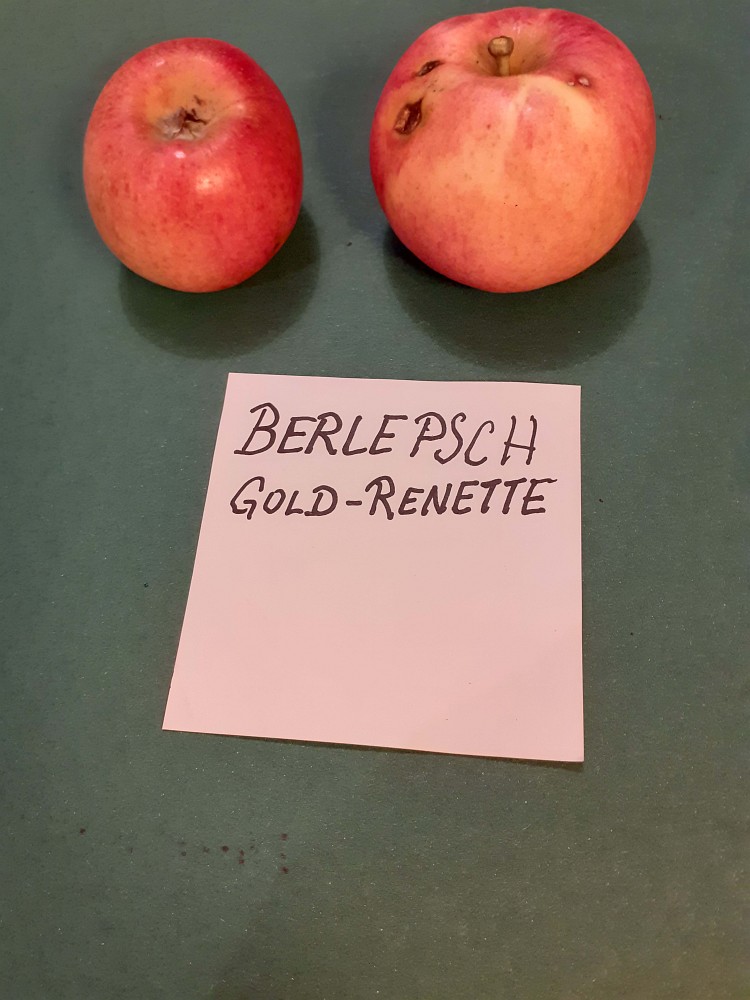 BERLEPSCH
GOLD-RENETTE